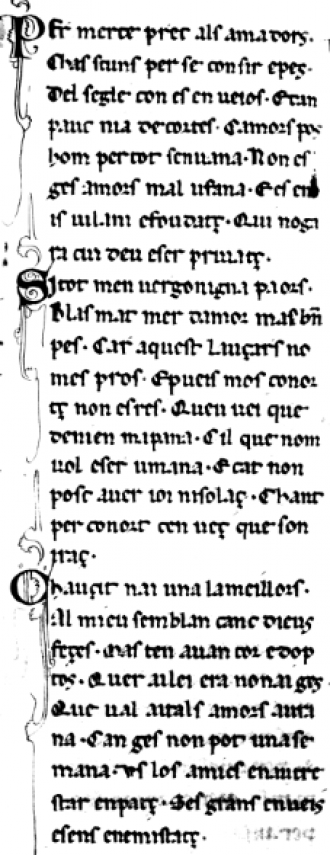 Per merce prec als amadors.
Chascuns per se consir e pes.
Del segle con es en ueios. E can
pauc nia de cortes. Camors pos
hom per tot senuana. Non es
ges amors mal ufana. E es en
is uilani e foudatz. Qui nogi
ra cui deu eser priuatz.
Sitot men uergonigna paors.
Blasmar mer damor mas bn̄
pes. Car aquest Lauçars no
mes pros. E pueis mos conor
tz non es res. Queu uei que
deuien mipina. Cil que nom
uol eser umana. E car non
posc auer ioi ni solaç. Chant
per conort cen uetz que son
iraç.
Chauçit nai una lameillors.
Al mieu semblan canc dieus
feçes. Mas ten auan cor e dop
tos. Quer ailei era nonai ges
Que ual aitals amors aura
na. Can ges non pot una se
mana. Us los amics en mere
star en patz. Ses grans enueis
e sens enemistatz.